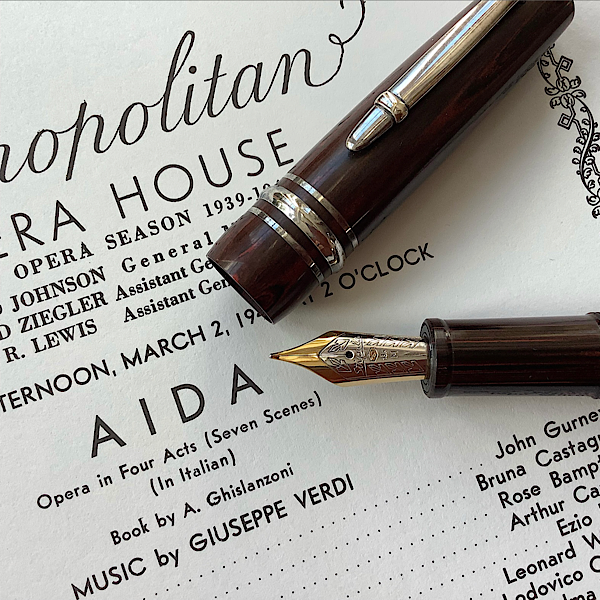 opolitan
ERA HOUSE
OPERA SEASON 1939-19
JOHNSON General
D ZIEGLER Assistant Gen
R. LEWIS Assistant Gen
TERNOON, MARCH 2, 194 AT 2 O'CLOCK
AIDA
Opera in Four Acts (Seven Scenes)
(In Italian)
Book by A. Ghislanzoni
MUSIC by GIUSEPPE VERDI
John Gurne
Bruna Castagn
Rose Bampt
Arthur Ca
Ezio
Leonard W
Lodovico